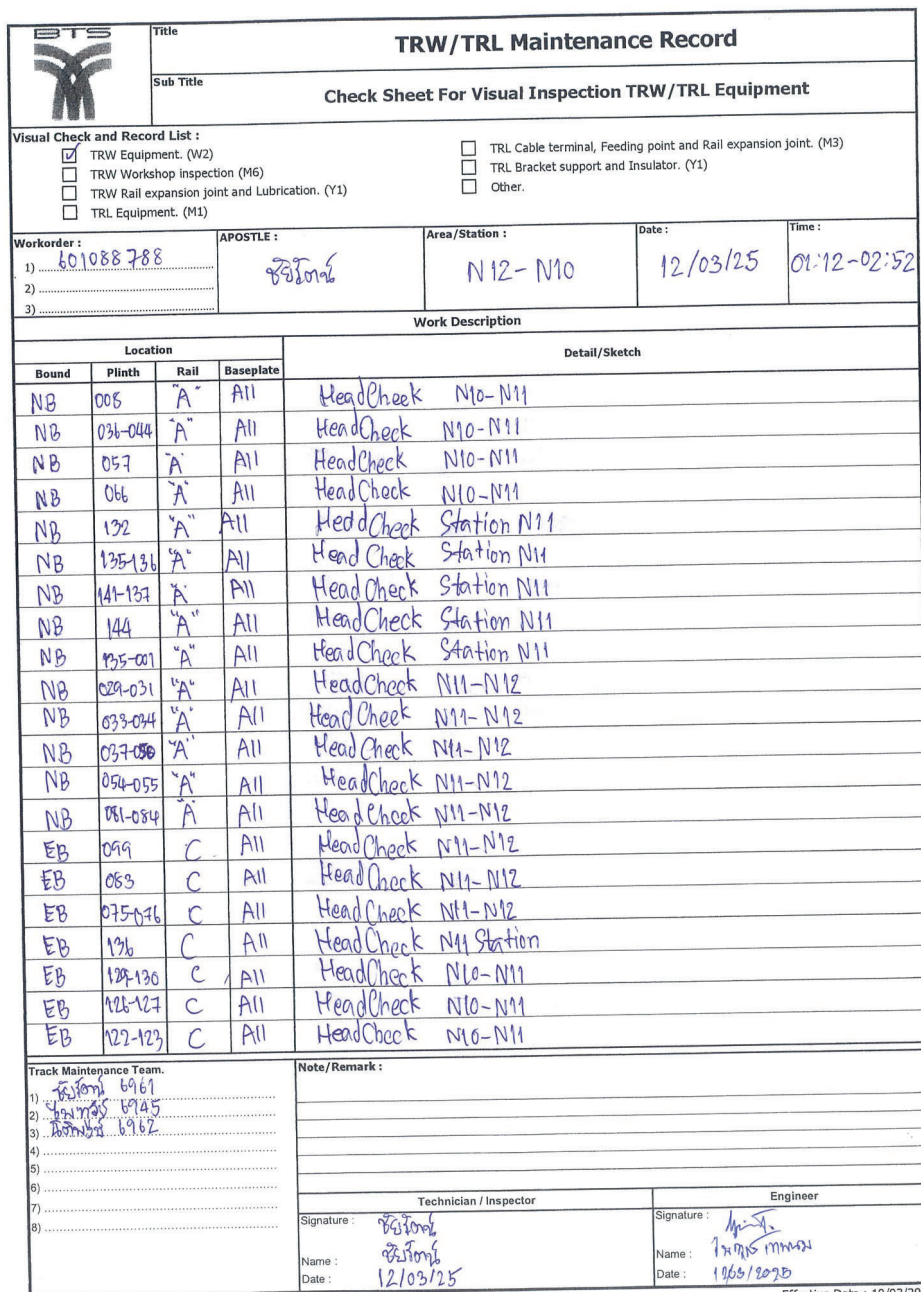 BTS
Title
TRW/TRL Maintenance Record
Sub Title
Check Sheet For Visual Inspection TRW/TRL Equipment
Visual Check and Record List :
TRW Equipment. (W2)
TRW Workshop inspection (M6)
TRW Rail expansion joint and Lubrication. (Y1)
TRL Equipment. (M1)
TRL Cable terminal, Feeding point and Rail expansion joint. (M3)
TRL Bracket support and Insulator. (Y1)
Other.
Workorder : APOSTLE : Area/Station : Date : Time :
1) 601088788 ชัยรัตน์ N12-N10 12/03/25 01:12-02:52
2)
3)
Work Description
Location Detail/Sketch
Bound Plinth Rail Baseplate
NB 008 "A" All HeadCheek N10-N11
NB 036-044 "A" All HeadCheck N10-N11
NB 057 "A" All HeadCheck N10-N11
NB 066 "A" All HeadCheck N10-N11
NB 132 "A" All HeadCheck Station N11
NB 135-136 "A" All Head Check Station N11
NB 141-137 "A" All HeadCheck Station N11
NB 144 "A" All Head Check Station N11
NB 135-001 "A" All HeadCheck Station N11
NB 029-031 "A" All HeadCheck N11-N12
NB 033-034 "A" All Head Cheek N11-N12
NB 037-050 "A" All HeadCheck N11-N12
NB 054-055 "A" All HeadCheck N11-N12
NB 081-084 "A" All HeadCheck N11-N12
EB 099 C All HeadCheck N11-N12
EB 083 C All HeadCheck N11-N12
EB 075-076 C All HeadCheck N11-N12
EB 136 C All HeadCheck N11 Station
EB 129-130 C All HeadCheck N10-N11
EB 126-127 C All HeadCheck N10-N11
EB 122-123 C All HeadCheck N10-N11
Track Maintenance Team. Note/Remark :
1) ชัยรัตน์ 6961
2) 6945
3) 6962
4)
5)
6)
7)
8)
Technician / Inspector Engineer
Signature : ชัยรัตน์ Signature :
Name : ชัยรัตน์ Name :
Date : 12/03/25 Date : 12/03/2025